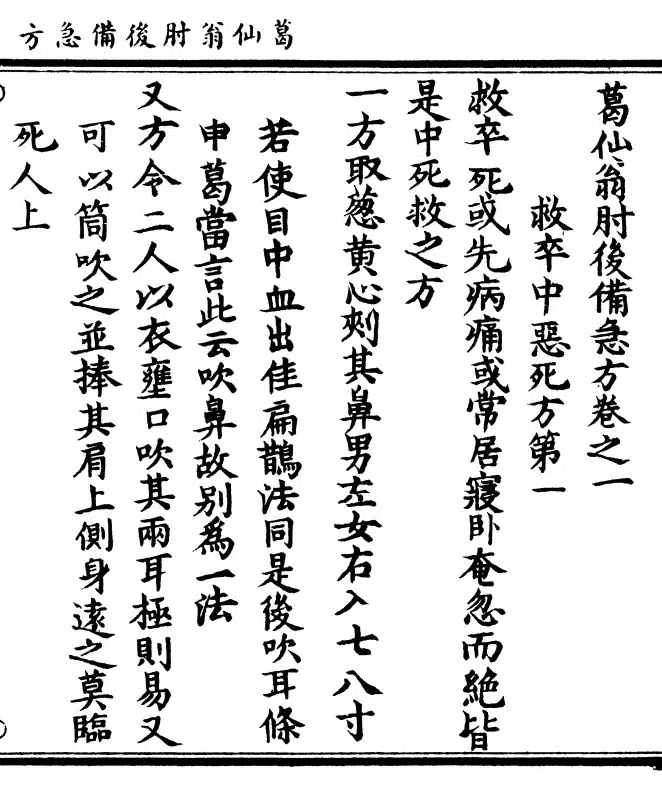 葛仙翁肘後備急方
葛仙翁肘後備急方卷之一
救卒中惡死方第一
救卒死或先病痛或常居寢卧奄忽而絶皆
是中死救之方
一方取葱黄心刾其鼻男左女右入七八寸
若使目中血出佳扁鵲法同是後吹耳條
申葛當言此云吹鼻故别為一法
又方令二人以衣壅口吹其兩耳極則易又
可以筒吹之並捧其肩上側身遠之莫臨
死人上